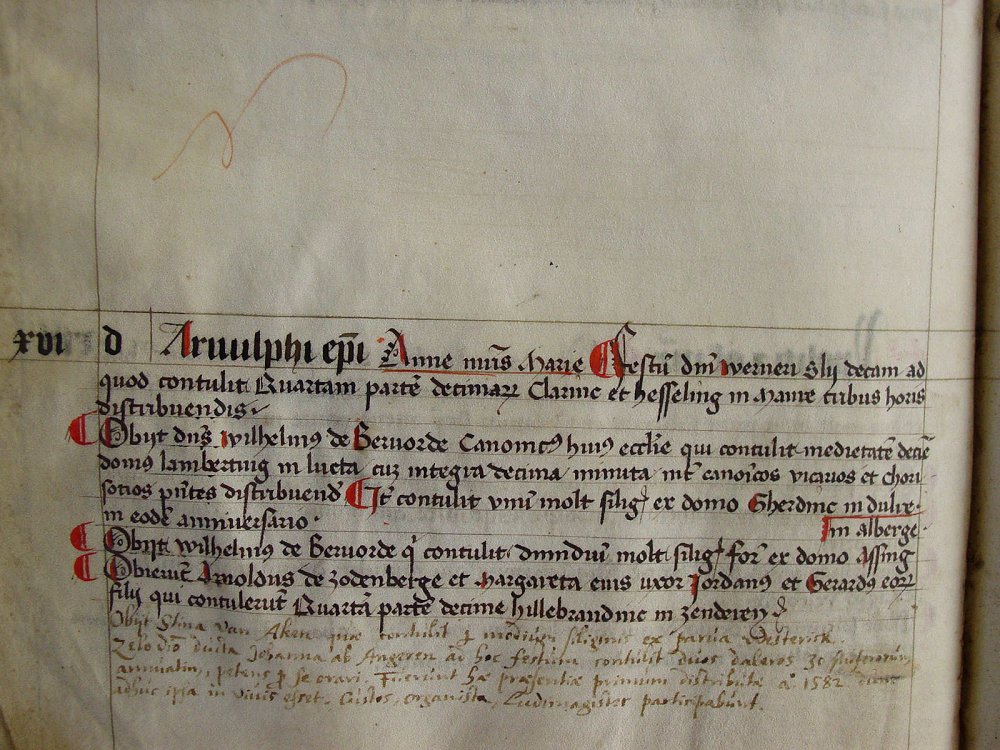 xvii d Arnulphi ep̄i Anne mr̄is Marie Festū dn̄i werneri Slij decani ad
quod contulit Quartam partē decimarꝝ Clarinc et hesseling in Mande tribus horis
distribuendis.
Obijt dn̄s wilhelmꝰ de Beruorde Canonicꝰ huiꝰ eccl̄ie qui contulit medietatē decīe
domꝰ lamberting in lucta cuz integra decima minuta int̄ canonicos vicarios et chori
sotios pn̄tes distribuend̄ It̄ contulit vnū molt siliḡ ex domo Gherdinc in dulre.
in eodē anniuersario. In alberge.
Obijt wilhelmꝰ de Beruorde q̄ contulit dimidiū molt siliḡ for̄ ex domo Assing
Obierūt Arnoldus de zodenberge et Margareta eius vxor Jordanꝰ et Gerardꝰ eorꝝ
filij qui contulerūt Quartā partē decime hillebrandinc in zenderen
Obijt Stina van Aken quæ contulit modium siliginis ex parua Oesterick.
Zelo diō ducta Johanna ab Angeren ad hoc festum contulit duos daleros 30 stuferorum
annuatim, petens p se orari. Fuerunt hæ præsentiæ primum distributæ aº 1582 cum
adhuc ipsa in viuis esset. Custos, organista, Ludimagister participabunt.